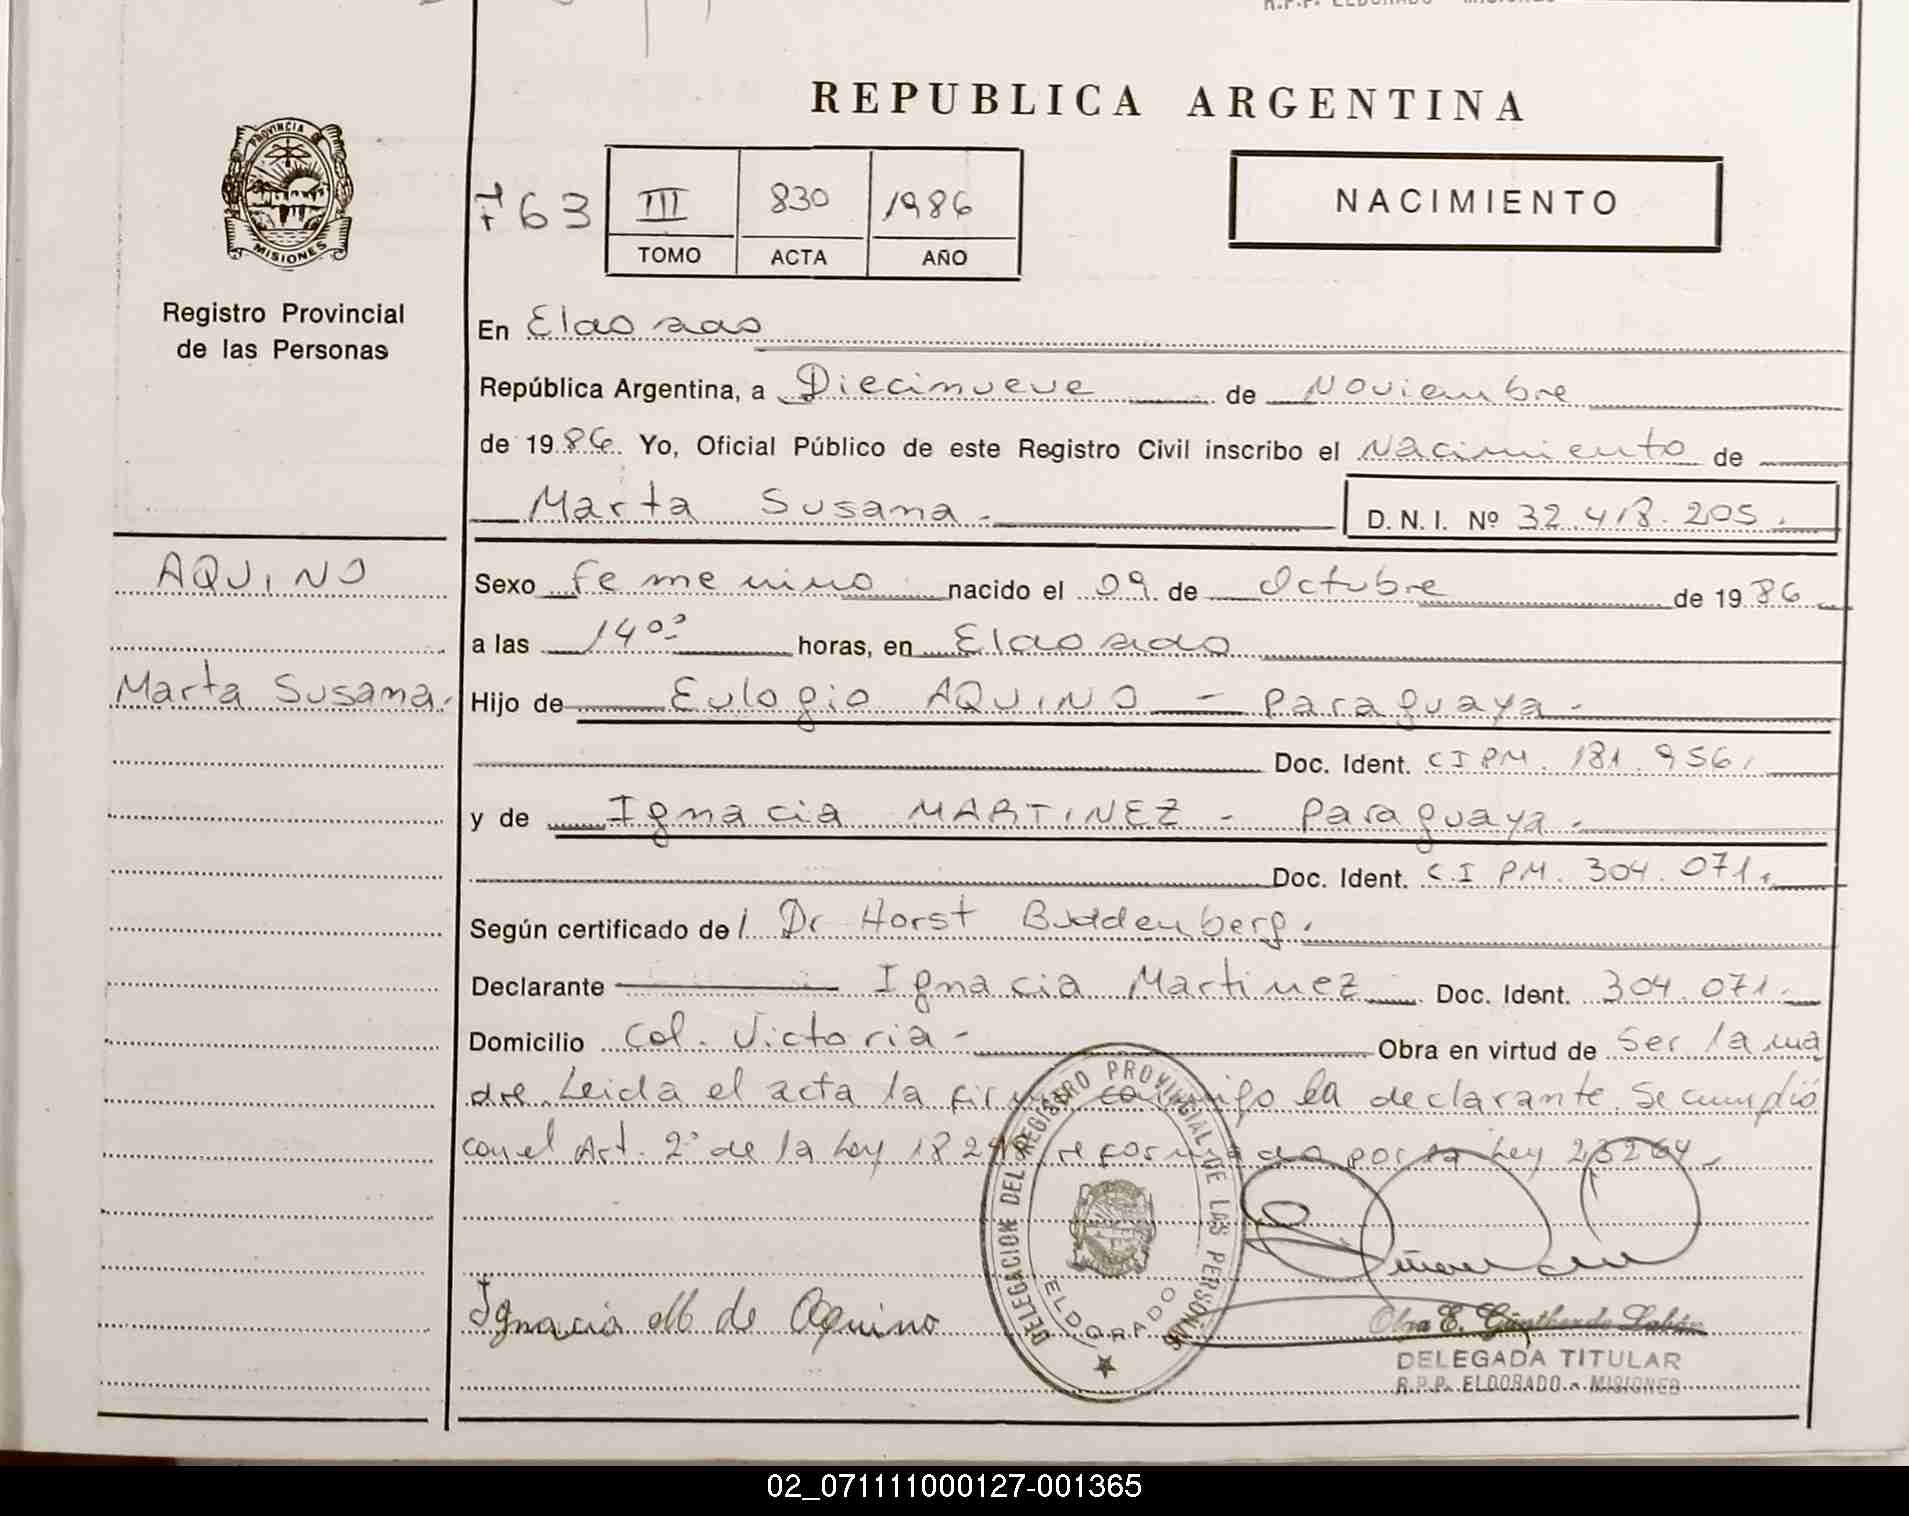 R.P.P. ELDORADO - MISIONES
REPUBLICA ARGENTINA
PROVINCIA DE
MISIONES
763
III 830 1986
TOMO ACTA AÑO
NACIMIENTO
Registro Provincial
de las Personas
En Eldorado
República Argentina, a Diecinueve de Noviembre
de 1986. Yo, Oficial Público de este Registro Civil inscribo el Nacimiento de
Marta Susana.- D.N.I. Nº 32.418.205.
AQUINO
Marta Susana.
Sexo Femenino nacido el 09 de Octubre de 1986
a las 14º² horas, en Eldorado
Hijo de Eulogio AQUINO - Paraguaya.
Doc. Ident. CIPM. 181.956.
y de Ignacia MARTINEZ - Paraguaya.
Doc. Ident. C.I PM. 304.071.
Según certificado de / Dr Horst Buddenberg.
Declarante Ignacia Martinez Doc. Ident. 304.071.
Domicilio Col. Victoria - Obra en virtud de Ser la ma
dre. Leida el acta la firma conmigo la declarante. Se cumplió
con el Art. 2º de la Ley 18248 reformado por la Ley 23264.
DELEGACION DEL REGISTRO PROVINCIAL DE LAS PERSONAS
ELDORADO
Ignacia M de Aquino
Olga E. Günther de Labán
DELEGADA TITULAR
R.P.P. ELDORADO - MISIONES
02_071111000127-001365